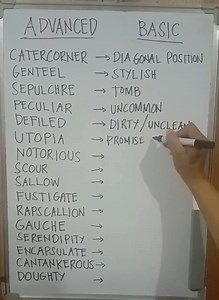 ADVANCED BASIC
CATERCORNER → DIAGONAL POSITION
GENTEEL → STYLISH
SEPULCHRE → TOMB
PECULIAR → UNCOMMON
DEFILED → DIRTY/UNCLEAN
UTOPIA → PROMISE
NOTORIOUS →
SCOUR →
SALLOW →
FUSTIGATE →
RAPSCALLION →
GAUCHE →
SERENDIPITY →
ENCAPSULATE →
CANTANKEROUS →
DOUGHTY →